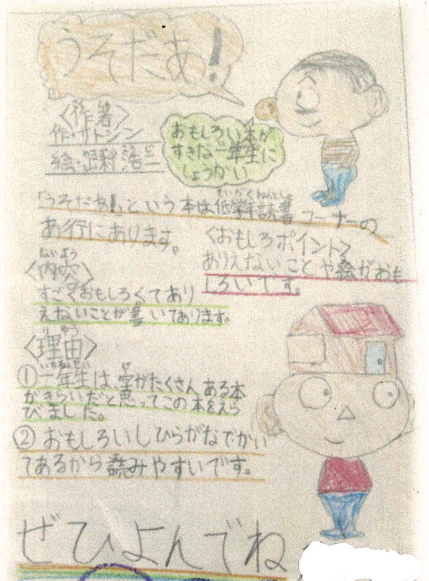 うそだあ！
〈作者〉
作・サトシン
絵・山村浩二
おもしろい本が
すきな一年生に
しょうかい
「うそだあ!」という本は低学年読書コーナーの
あ行にあります。
〈おもしろポイント〉
ありえないことや絵がおも
しろいです。
ないよう
〈内容〉
すごくおもしろくてあり
えないことが書いてあります。
りゆう
〈理由〉
①一年生は、字がたくさんある本
がきらいだと思ってこの本をえら
びました。
②おもしろいしひらがなでかい
てあるから読みやすいです。
ぜひよんでね